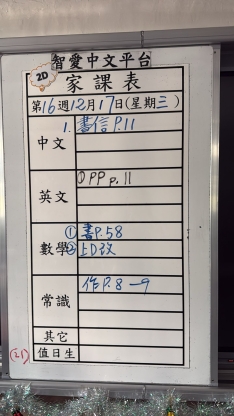 智愛中文平台
2D
家課表
第16週12月17日(星期三)
中文
1. 書信P.11
英文
① PP p.11
數學
① 書P.58
② 上D改
常識
作P.8-9
其它
(21) 值日生